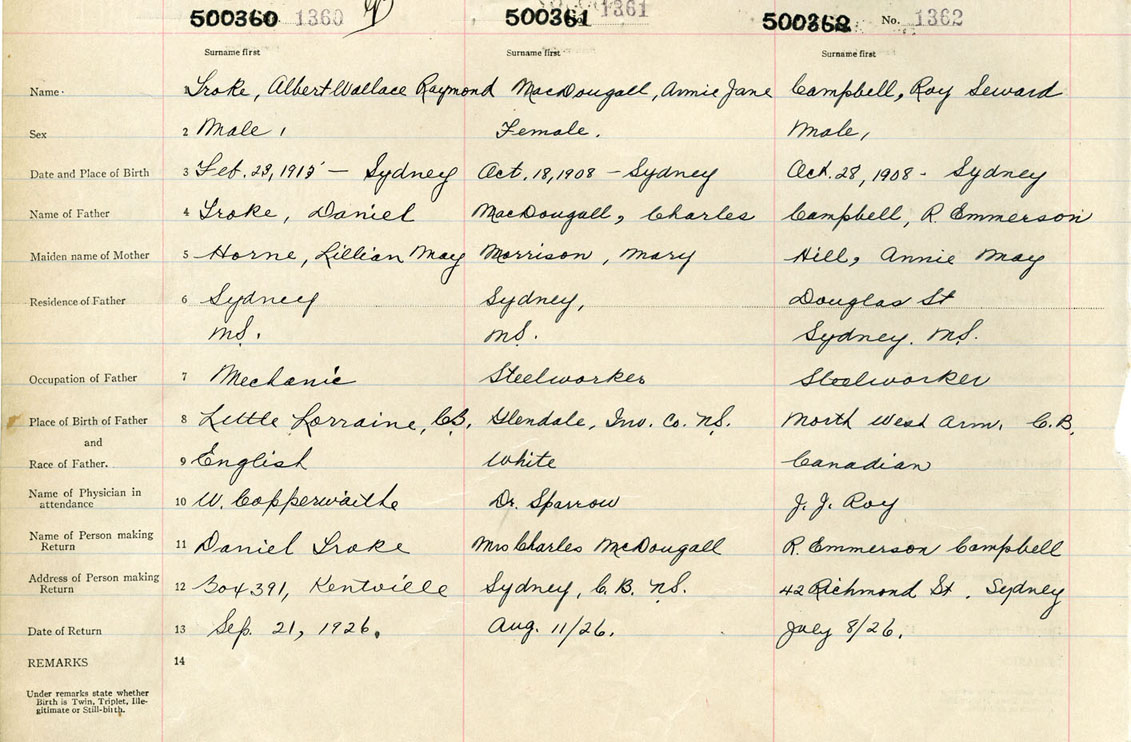 500360 1360 500361 1361 500362 No. 1362
Surname first Surname first Surname first
Name Troke, Albert Wallace Raymond MacDougall, Annie Jane Campbell, Roy Seward
Sex 2 Male, Female. Male,
Date and Place of Birth 3 Feb. 23, 1915 — Sydney Oct. 18, 1908 - Sydney Oct. 28, 1908 - Sydney
Name of Father 4 Troke, Daniel MacDougall, Charles Campbell, R. Emmerson
Maiden name of Mother 5 Horne, Lillian May Morrison, Mary Hill, Annie May
Residence of Father 6 Sydney Sydney, Douglas St
N.S. N.S. Sydney. N.S.
Occupation of Father 7 Mechanic Steelworker Steelworker
Place of Birth of Father 8 Little Lorraine, C.B. Glendale, Inv. Co. N.S. North West Arm. C.B.
and
Race of Father. 9 English White Canadian
Name of Physician in
attendance 10 W. Copperwaithe Dr. Sparrow J. J. Roy
Name of Person making
Return 11 Daniel Troke Mrs Charles McDougall R. Emmerson Campbell
Address of Person making
Return 12 Box 391, Kentville Sydney, C.B. N.S. 42 Richmond St. Sydney
Date of Return 13 Sep. 21, 1926. Aug. 11/26. July 8/26.
REMARKS 14
Under remarks state whether
Birth is Twin, Triplet, Ille-
gitimate or Still-birth.